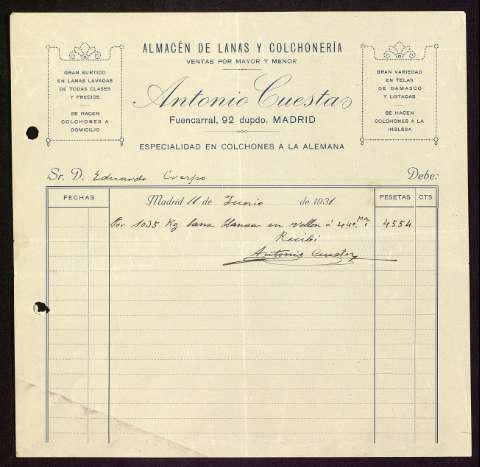 ALMACÉN DE LANAS Y COLCHONERÍA
VENTAS POR MAYOR Y MENOR
Antonio Cuesta
Fuencarral, 92 dupdo. MADRID
ESPECIALIDAD EN COLCHONES A LA ALEMANA
GRAN SURTIDO
EN LANAS LAVADAS
DE TODAS CLASES
Y PRECIOS
SE HACEN
COLCHONES A
DOMICILIO
GRAN VARIEDAD
EN TELAS
DE DAMASCO
Y LISTADAS
SE HACEN
COLCHONES A LA
INGLESA
Sr. D. Eduardo Crespo Debe:
FECHAS Madrid 11 de Junio de 1931 PESETAS CTS
Por 1035 Kg lana blanca en vellon á 4'40 4554
Recibí
Antonio Cuesta